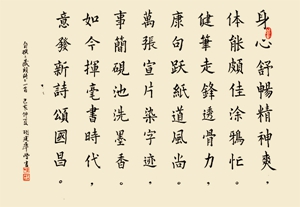 身心舒暢精神爽，
体能頗佳涂鴉忙。
健筆走鋒透骨力，
康句跃紙道風尚。
萬張宣片染字迹，
事簡硯池洗墨香。
如今揮毫書時代，
意發新詩頌國昌。